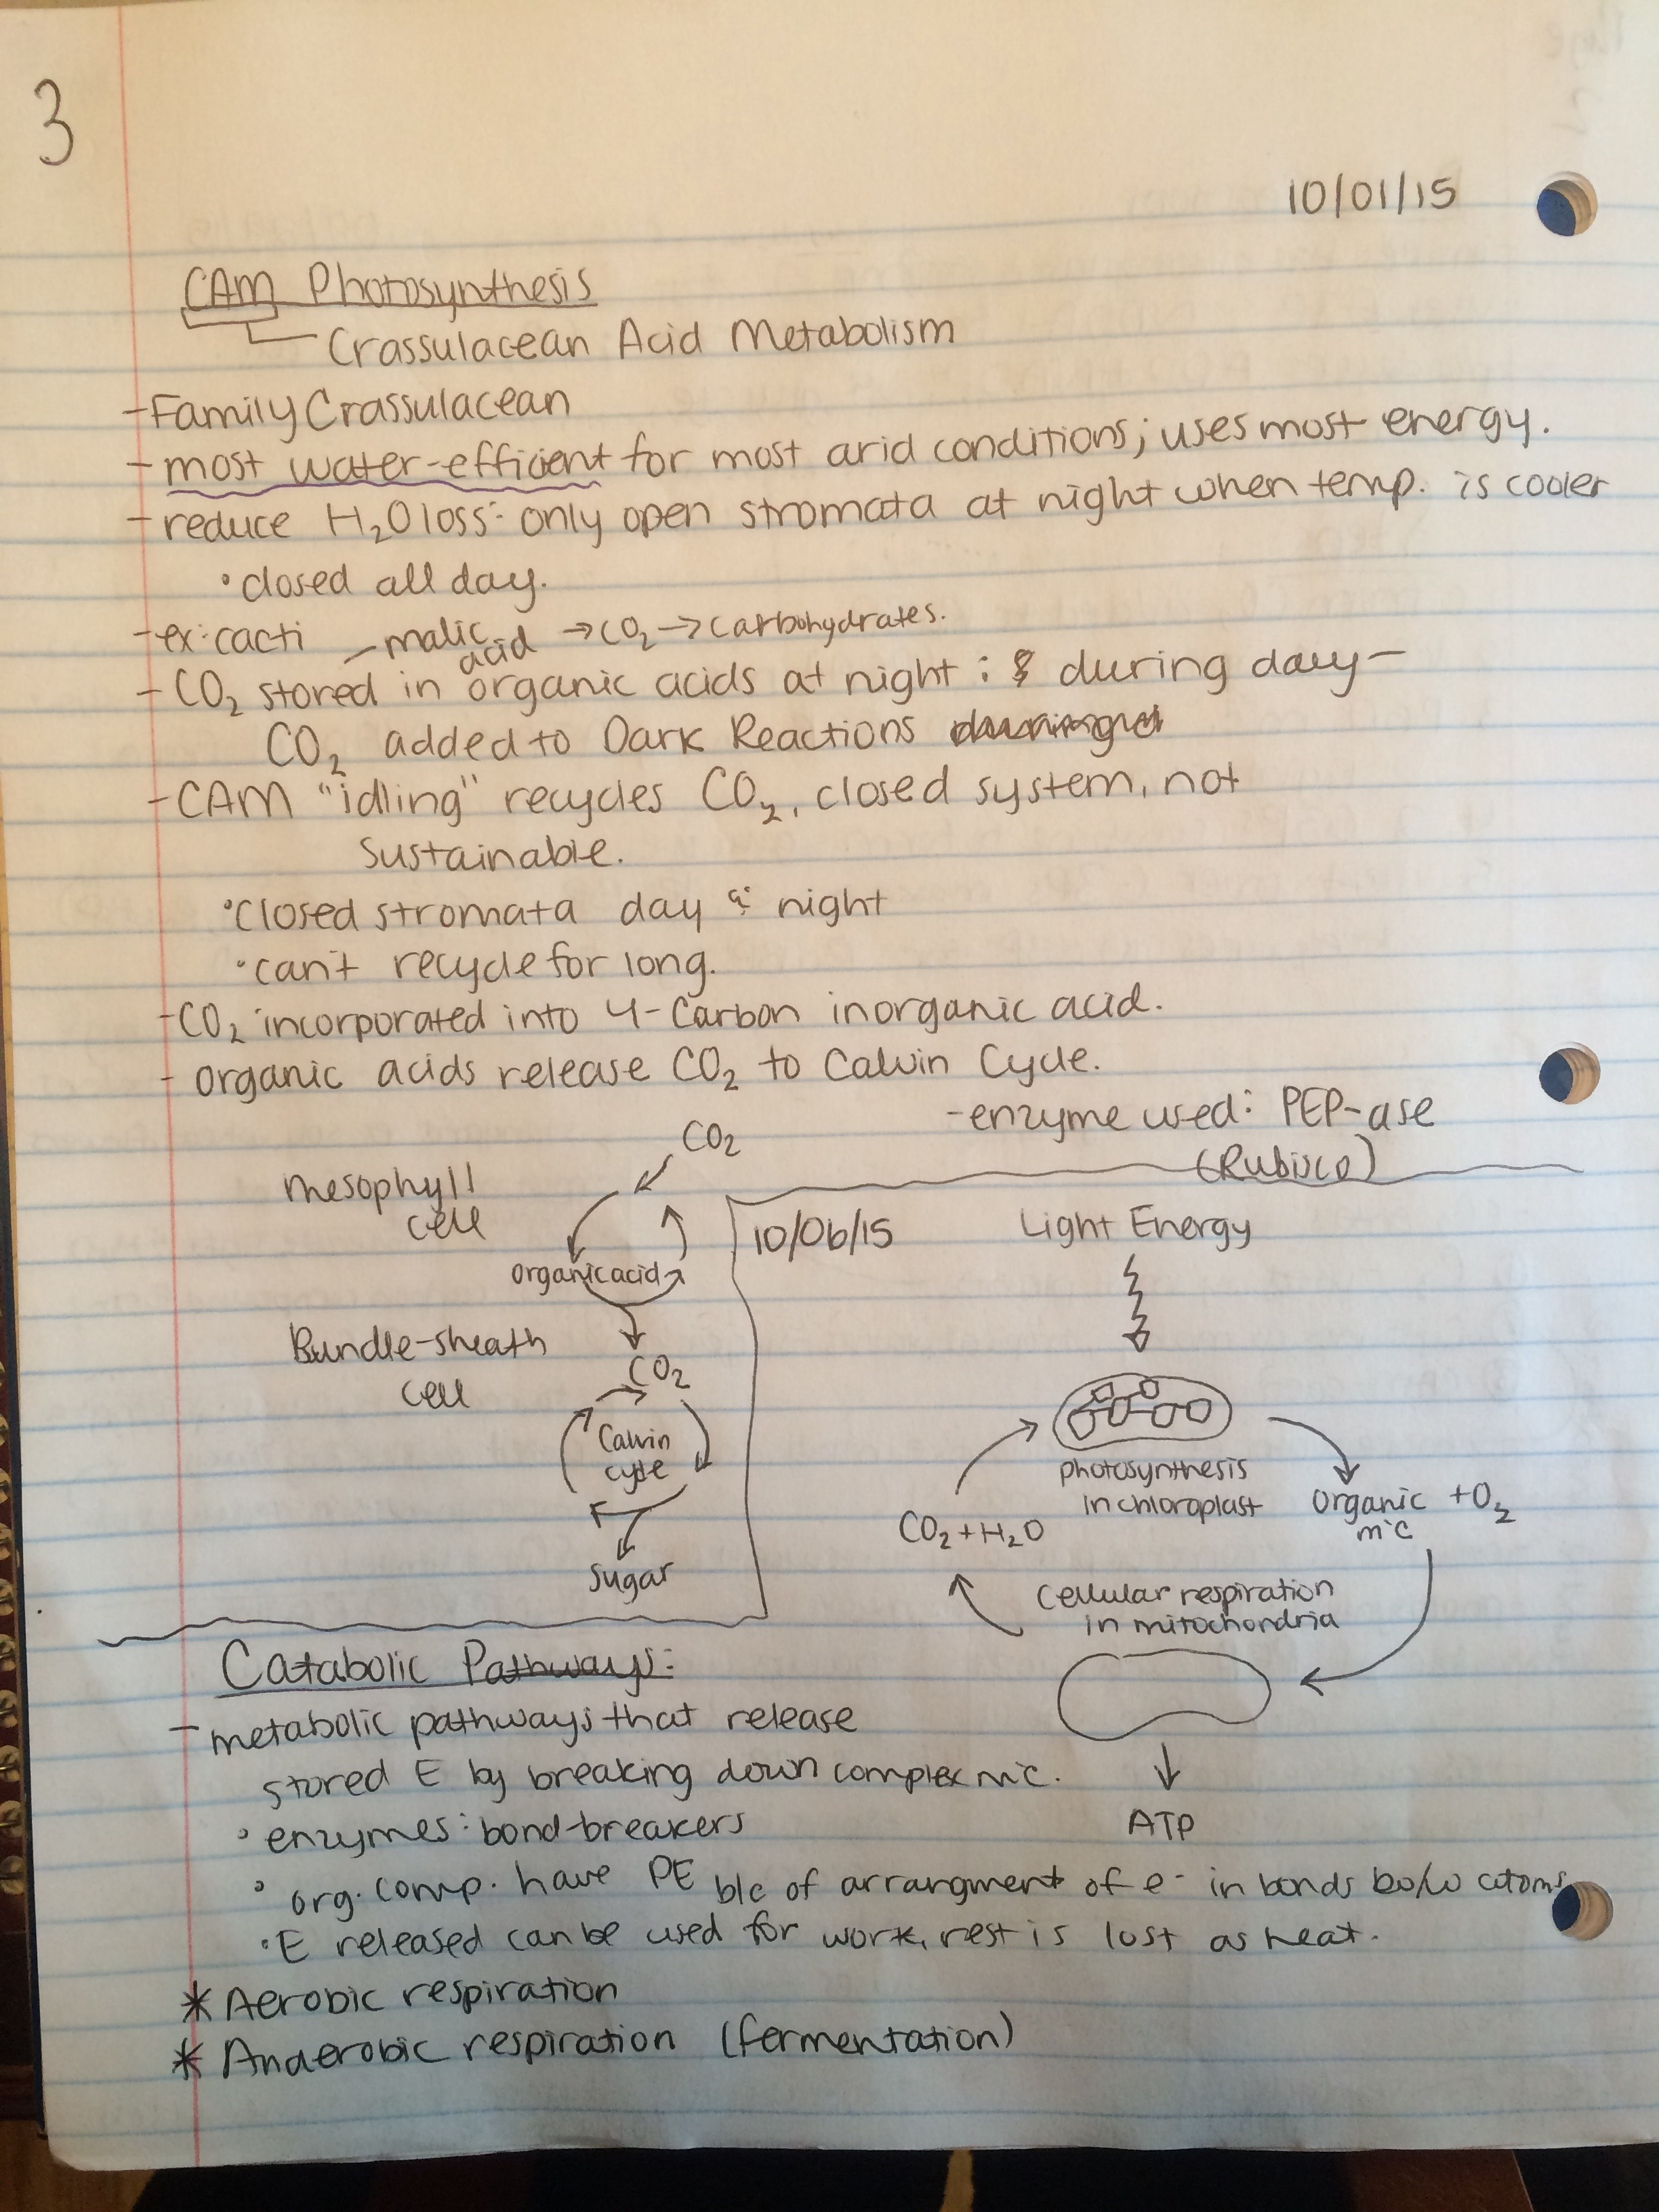 3
10/01/15
CAM Photosynthesis
Crassulacean Acid Metabolism
- Family Crassulacean
- most water-efficient for most arid conditions; uses most energy.
- reduce H₂O loss: only open stromata at night when temp. is cooler
• closed all day.
- ex: cacti
- malic acid → CO₂ → carbohydrates.
- CO₂ stored in organic acids at night ; & during day -
CO₂ added to Dark Reactions
- CAM "idling" recycles CO₂, closed system, not
sustainable.
• closed stromata day & night
• can't recycle for long.
- CO₂ incorporated into 4-Carbon inorganic acid.
- organic acids release CO₂ to Calvin Cycle.
- enzyme used: PEP-ase
(Rubisco)
CO₂
Mesophyll
cell
organic acid
Bundle-sheath
cell
CO₂
Calvin
cycle
Sugar
10/06/15
Light Energy
photosynthesis
in chloroplast
Organic + O₂
m'c
CO₂ + H₂O
Cellular respiration
in mitochondria
ATP
Catabolic Pathways:
- metabolic pathways that release
stored E by breaking down complex m'c.
• enzymes: bond-breakers
• org. comp. have PE b/c of arrangment of e⁻ in bonds b/w atoms
• E released can be used for work, rest is lost as heat.
* Aerobic respiration
* Anaerobic respiration (fermentation)